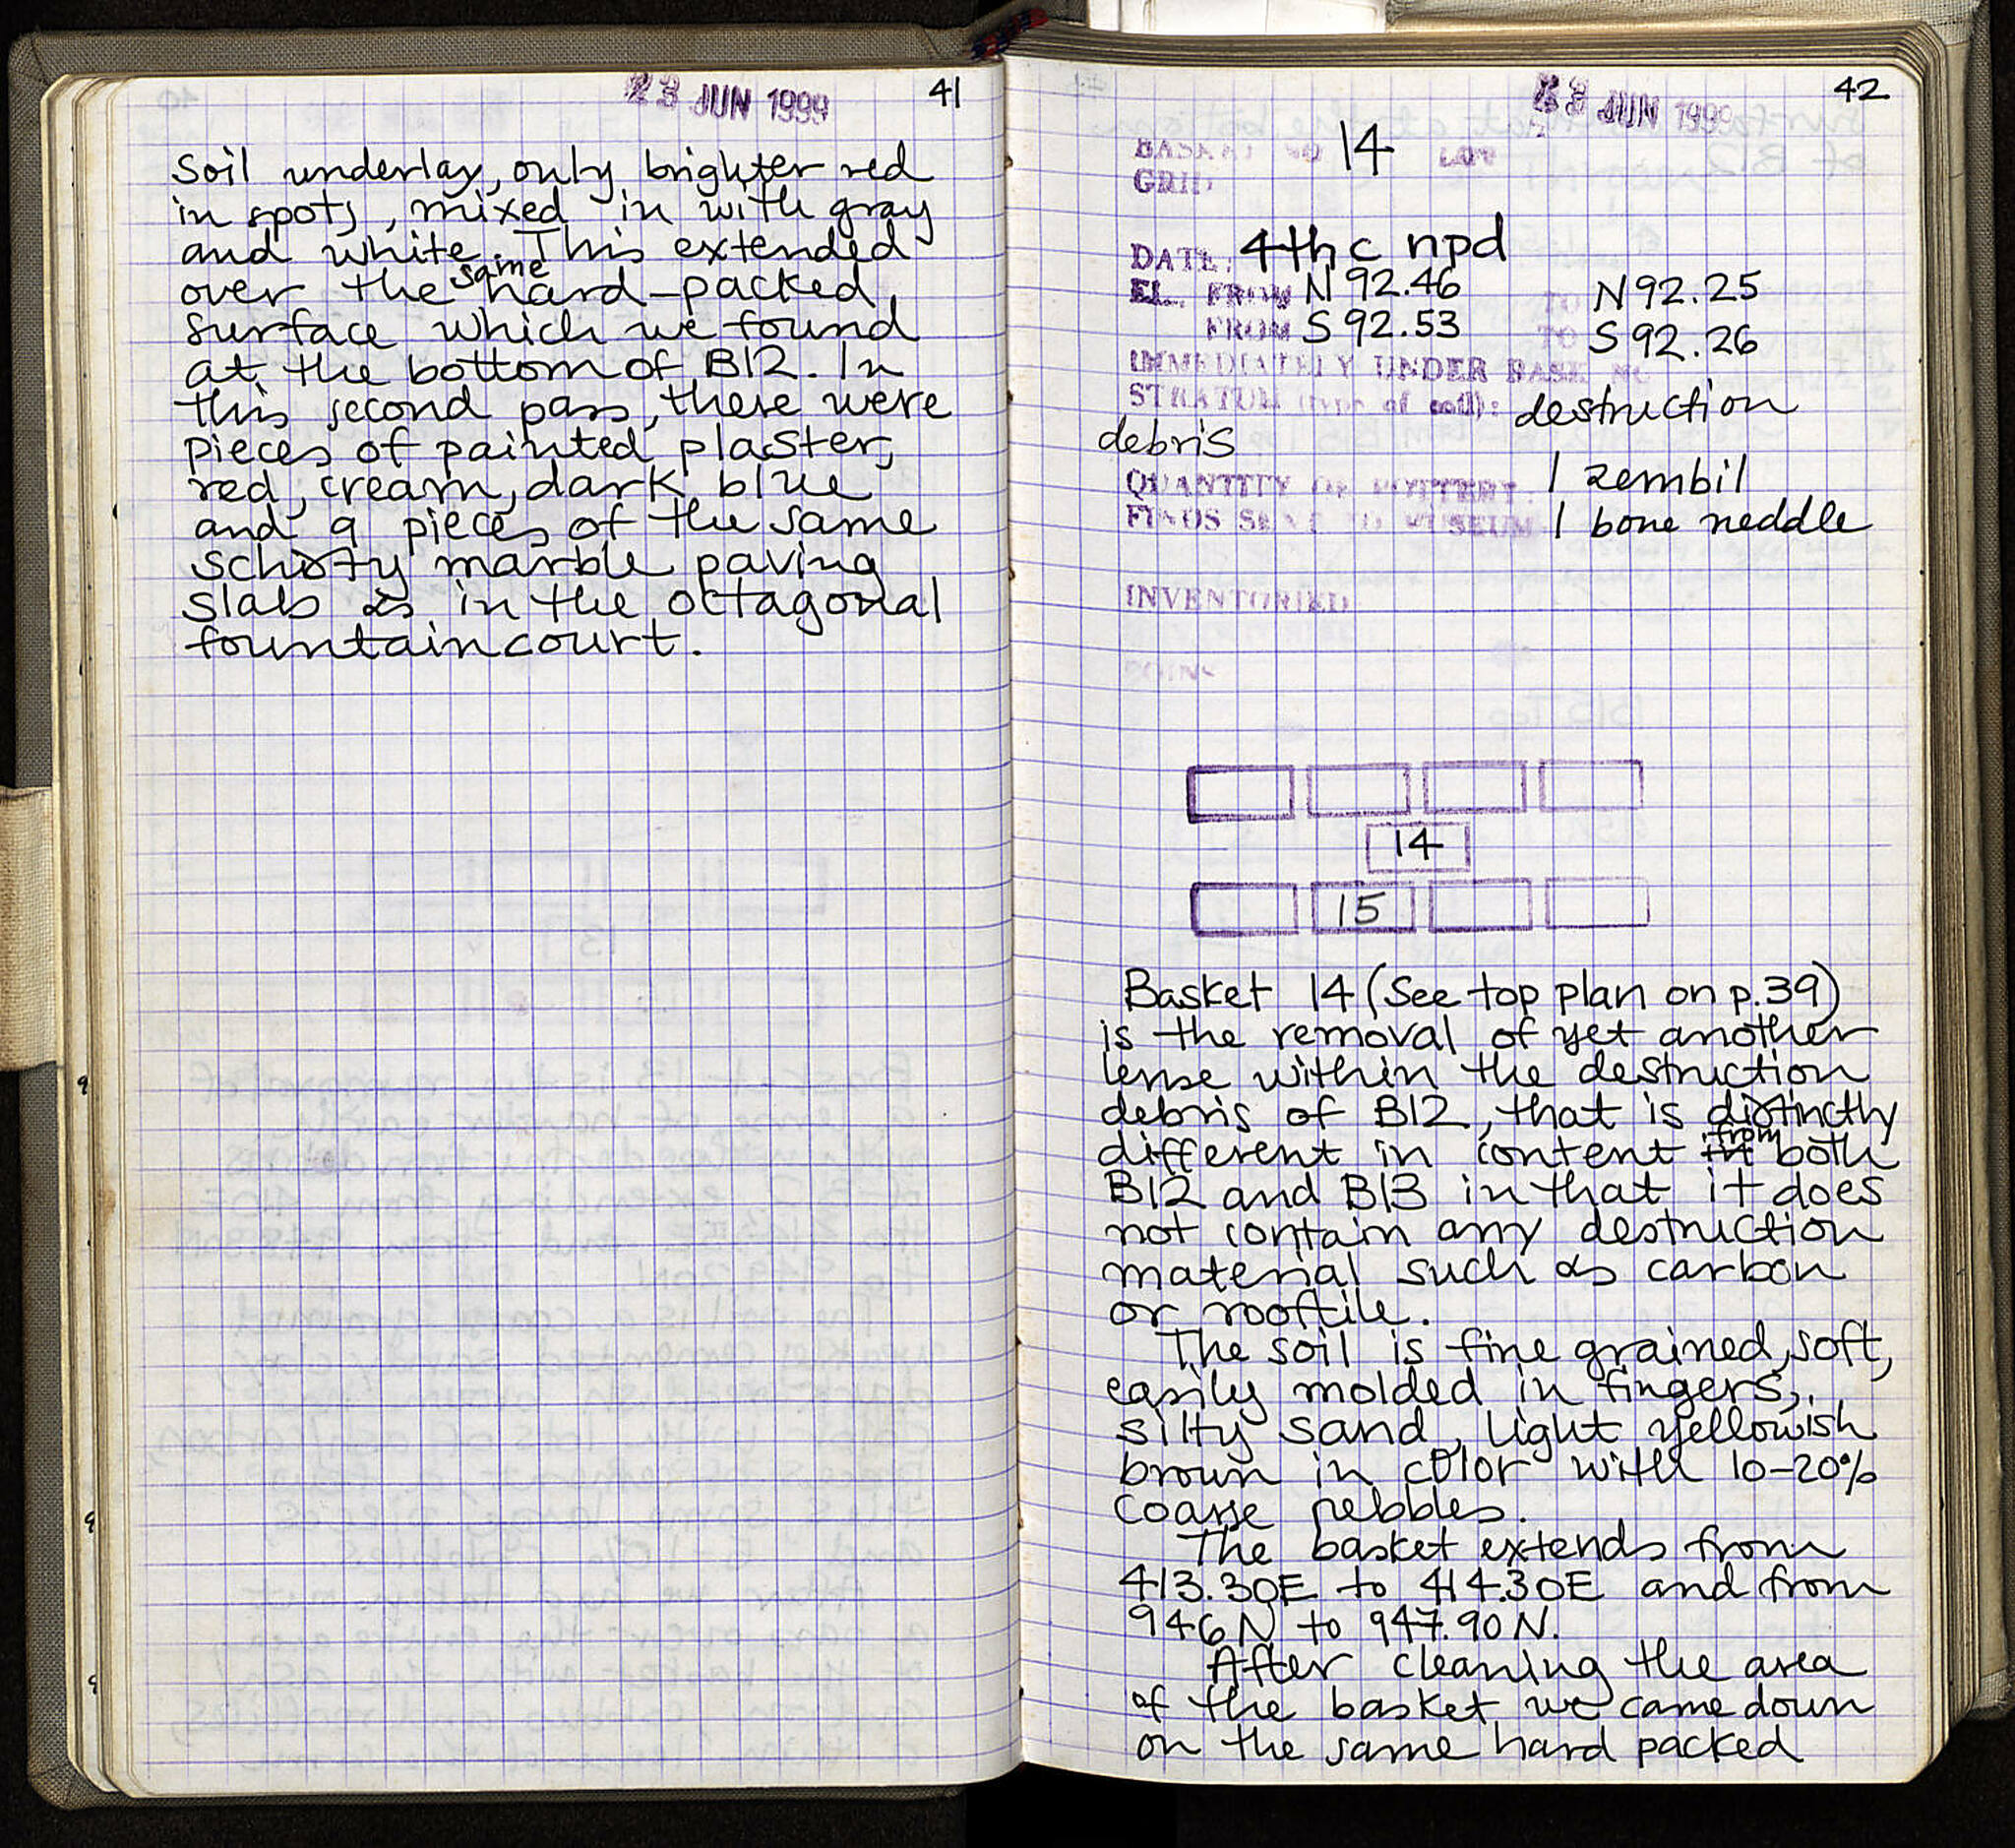 23 JUN 1999
41
soil underlay, only brighter red
in spots, mixed in with gray
and white. This extended
over the same hard-packed,
surface which we found
at the bottom of B12. In
this second pass, there were
pieces of painted plaster,
red, cream, dark blue
and 9 pieces of the same
schisty marble paving
slabs as in the octagonal
fountain court.
23 JUN 1999
42
BASKET NO 14 LOT
GRID
DATE: 4th c npd
EL. FROM N 92.46 TO N 92.25
FROM S 92.53 TO S 92.26
IMMEDIATELY UNDER BASK NO
STRATUM (type of soil): destruction
debris
QUANTITY OF POTTERY: 1 zembil
FINDS SENT TO MUSEUM 1 bone neddle
INVENTORIED
COINS
14
15
Basket 14 (See top plan on p.39)
is the removal of yet another
lense within the destruction
debris of B12, that is distinctly
different in content from both
B12 and B13 in that it does
not contain any destruction
material such as carbon
or rooftile.
The soil is fine grained, soft,
easily molded in fingers,
silty sand, light yellowish
brown in color with 10-20%
coarse pebbles.
The basket extends from
413.30E to 414.30E and from
946N to 947.90N.
After cleaning the area
of the basket we came down
on the same hard packed